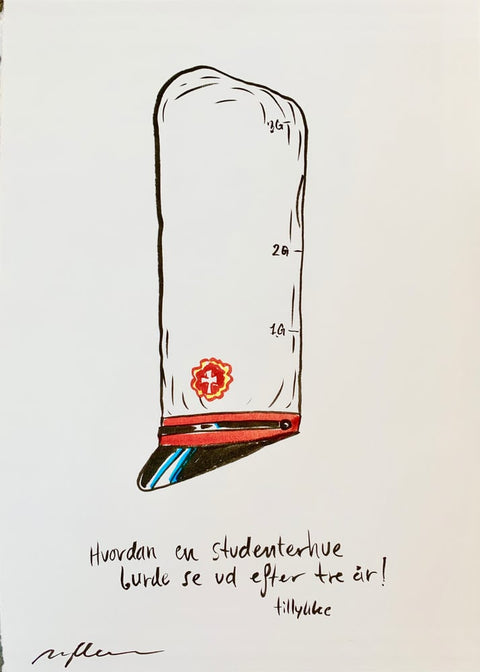 3G
2G
1.G
Hvordan en studenterhue
burde se ud efter tre år!
tillykke